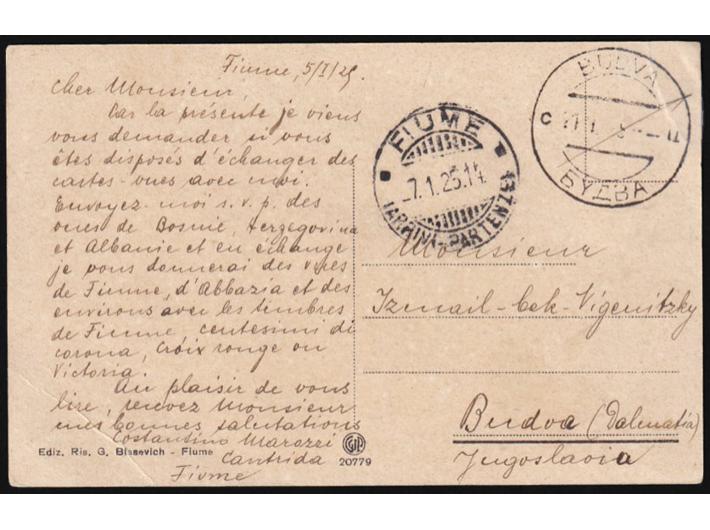 Fiume, 5/I/25.
Cher Monsieur,
Par la présente je viens
vous demander si vous
êtes disposés d'échanger des
cartes-vues avec moi.
Envoyez-moi s.v.p. des
vues de Bosnie, Herzegovina
et Albanie et en échange
je vous donnerai des vues
de Fiume, d'Abbazia et des
environs avec les timbres
de Fiume centesimi di
corona, Croix rouge ou
Victoria.
Au plaisir de vous
lire, recevez Monsieur
mes bonnes salutations
Costantino Marozzi
Cantrida
Fiume
Ediz. Ris. G. Bissevich - Fiume
20779
FIUME
7.1.25.14
PARTENZE
BUDVA
БУДВА
Monsieur
Izmail-bek-Vigenitzky
Budva (Dalmatia)
Jugoslavia